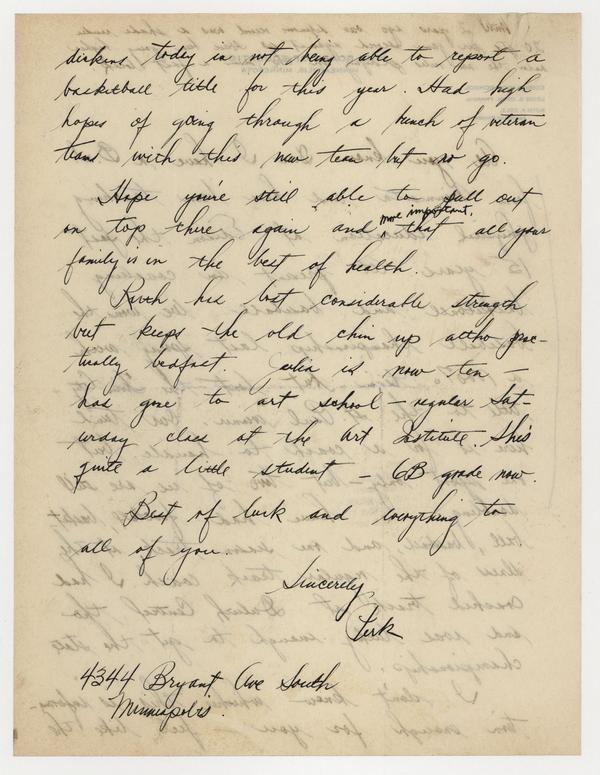 today in not being able to report a
basketball title for this year. Had high
hopes of going through a bunch of veteran
teams with this new team but no go.
Hope you're still able to pull out
on top there again and more important, that all your
family is in the best of health.
Ruth has lost considerable strength
but keeps the old chin up altho prac-
tically bedfast. Julia is now ten —
has gone to art school — regular Sat-
urday class at the Art Institute. She's
quite a little student — 6B grade now.
Best of luck and everything to
all of you.
Sincerely
Perk
4344 Bryant Ave South
Minneapolis.